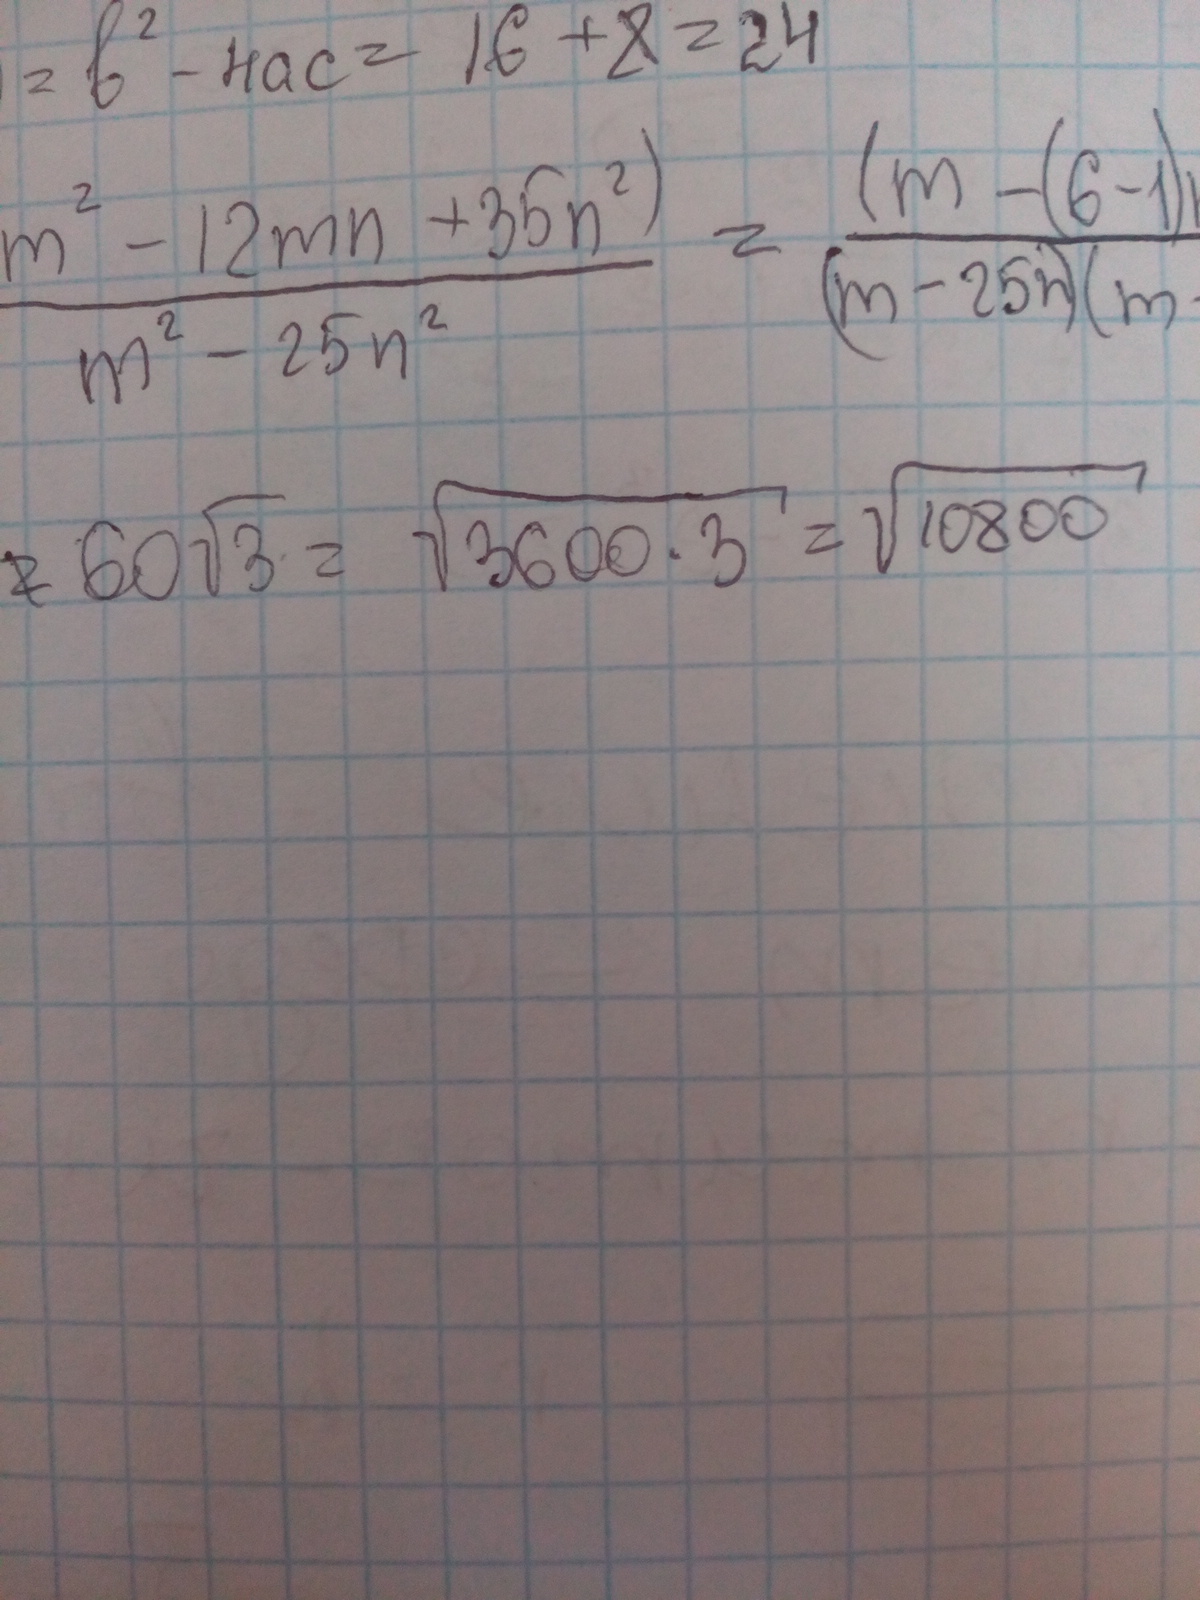 = b² - 4ac = 16 + 8 = 24
m² - 12mn + 35n²) = (m - (6-1)
m² - 25n² (m - 25n)(m -
= 60√3 = √3600·3 = √10800